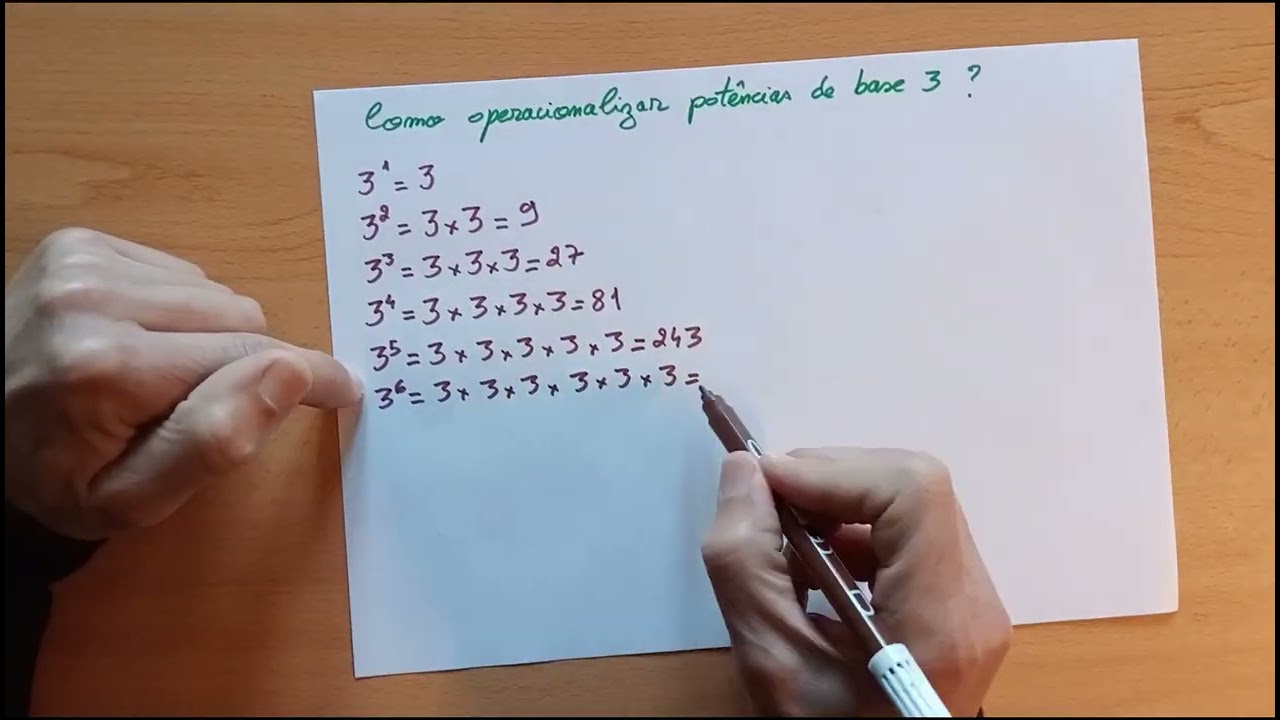 Como operacionalizar potências de base 3 ?
3¹ = 3
3² = 3 × 3 = 9
3³ = 3 × 3 × 3 = 27
3⁴ = 3 × 3 × 3 × 3 = 81
3⁵ = 3 × 3 × 3 × 3 × 3 = 243
3⁶ = 3 × 3 × 3 × 3 × 3 × 3 =